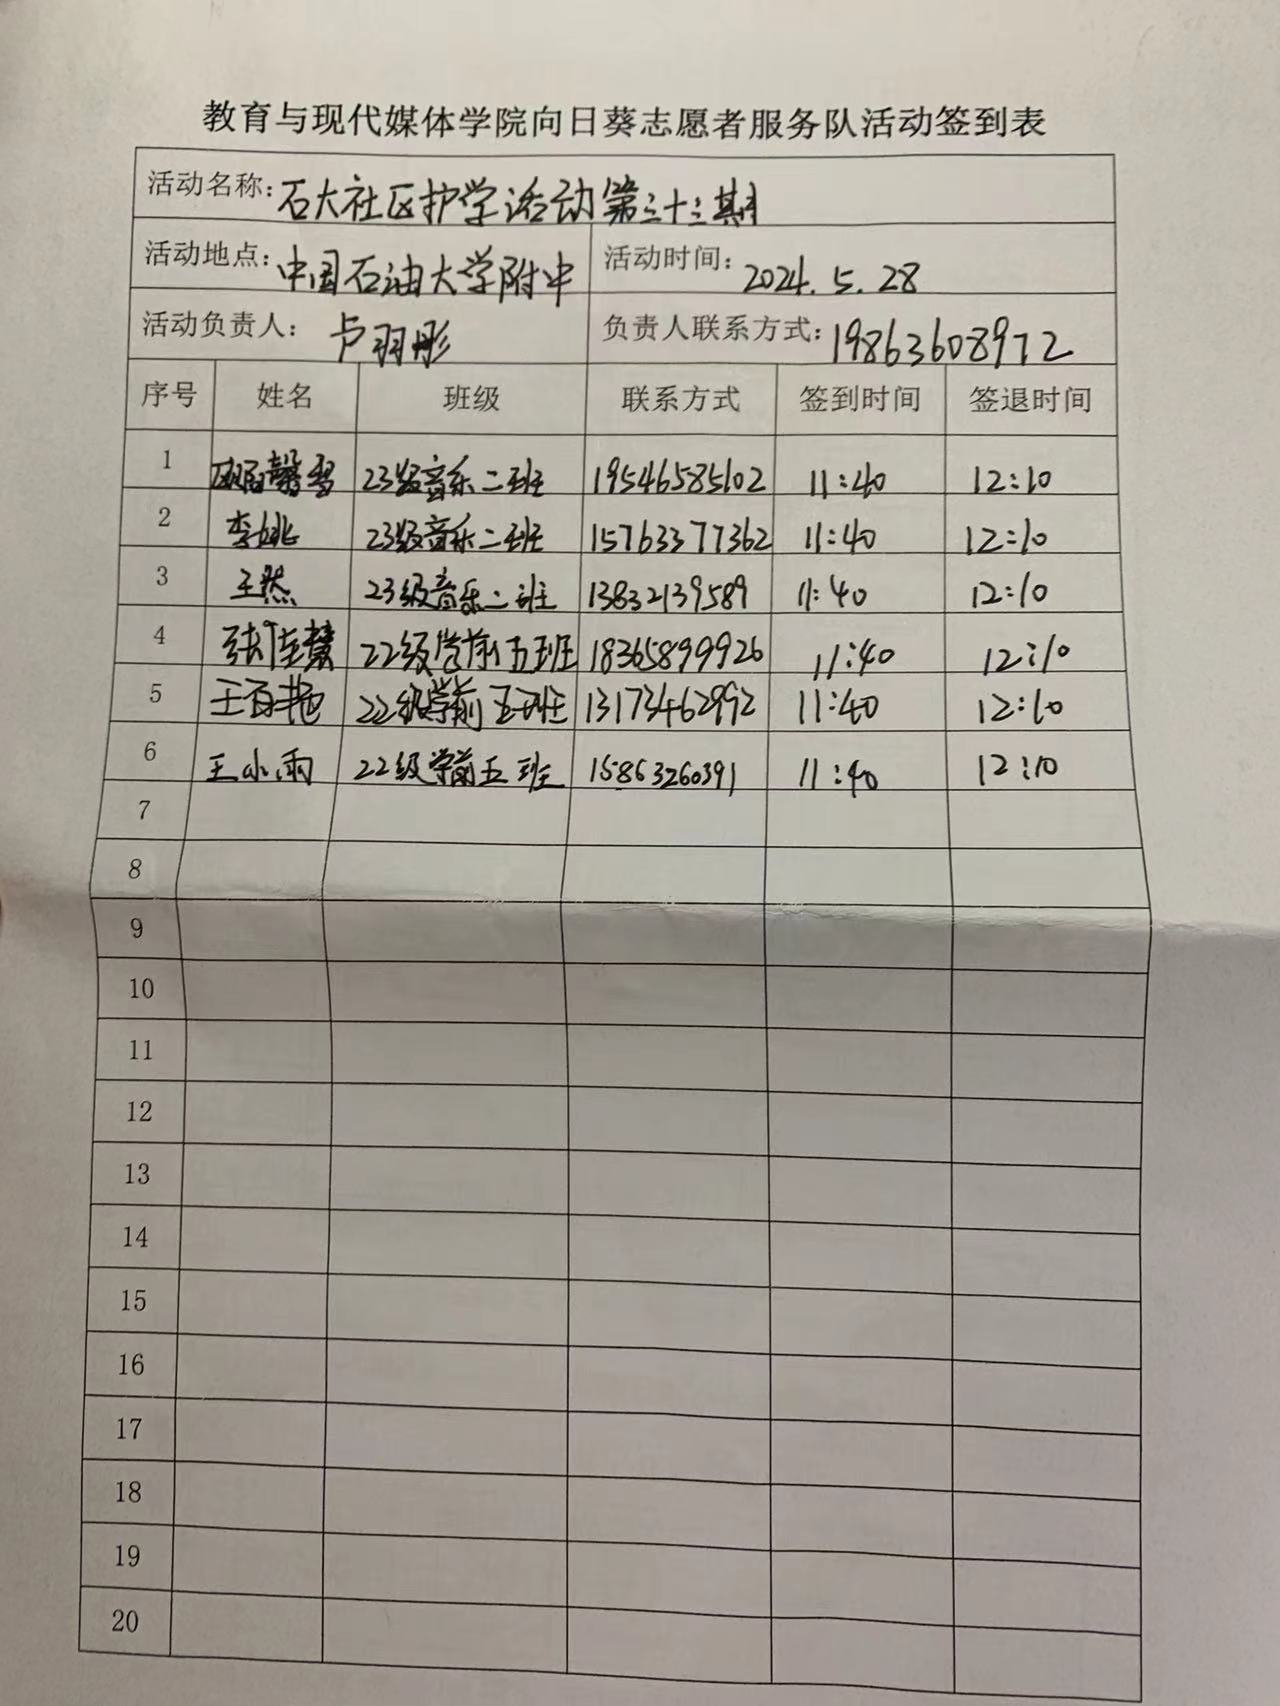 教育与现代媒体学院向日葵志愿者服务队活动签到表
活动名称: 石大社区护学活动第三十三期
活动地点: 中国石油大学附中 活动时间: 2024.5.28
活动负责人: 卢羽彤 负责人联系方式: 19863608972
序号 姓名 班级 联系方式 签到时间 签退时间
1 23级音乐二班 19546585102 11:40 12:10
2 李姚 23级音乐二班 15763377362 11:40 12:10
3 王然 23级音乐二班 13832139589 11:40 12:10
4 张佳慧 22级学前五班 18365899926 11:40 12:10
5 王百艳 22级学前五班 13173462992 11:40 12:10
6 王小雨 22级学前五班 15863260391 11:40 12:10
7
8
9
10
11
12
13
14
15
16
17
18
19
20